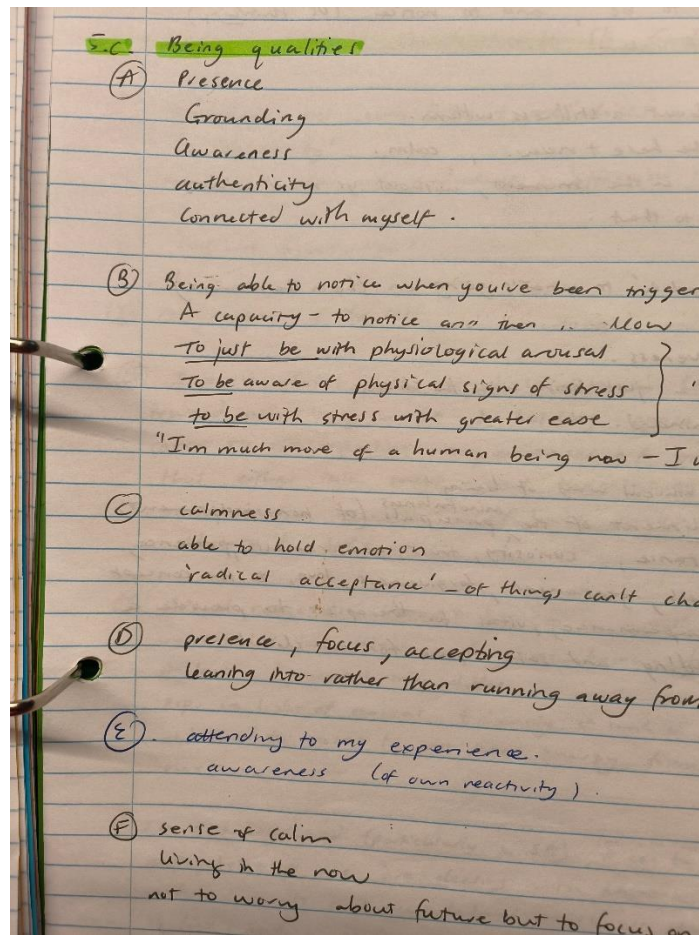 5.C. Being qualities
(A) Presence
Grounding
Awareness
authenticity
Connected with myself.
(B) Being able to notice when you've been trigger
A capacity - to notice and then .. slow
To just be with physiological arousal
To be aware of physical signs of stress
to be with stress with greater ease
"I'm much more of a human being now - I
(C) calmness
able to hold emotion
'radical acceptance' - of things can't cha
(D) presence, focus, accepting
leaning into rather than running away from
(E). attending to my experience.
awareness (of own reactivity).
(F) sense of calm
living in the now
not to worry about future but to focus on